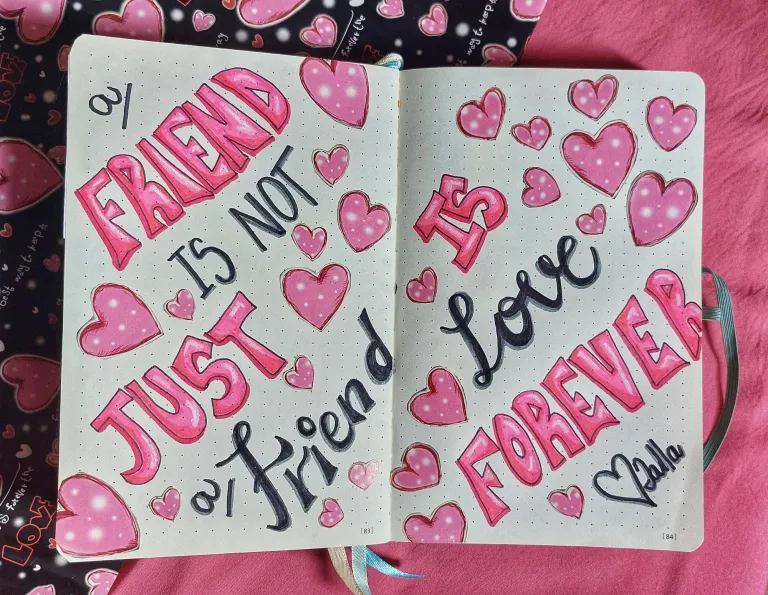 a
FRIEND
IS NOT
JUST
a
Friend
[83]
IS
Love
FOREVER
[84]
best way to keep
LOVE